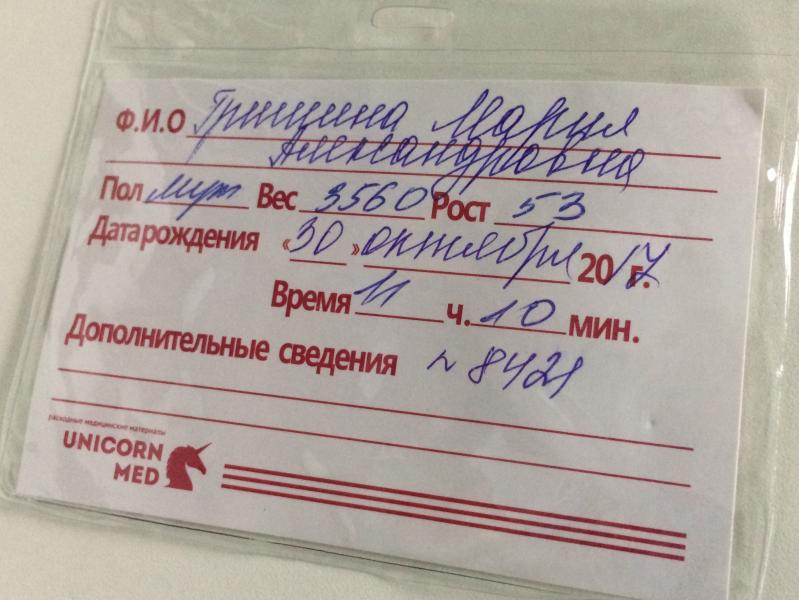 Ф.И.О Гришина Мария
Александровна
Пол муж Вес 3560 Рост 53
Дата рождения «30» октября 2017 г.
Время 11 ч. 10 мин.
Дополнительные сведения ~ 8421
расходные медицинские материалы
UNICORN
MED